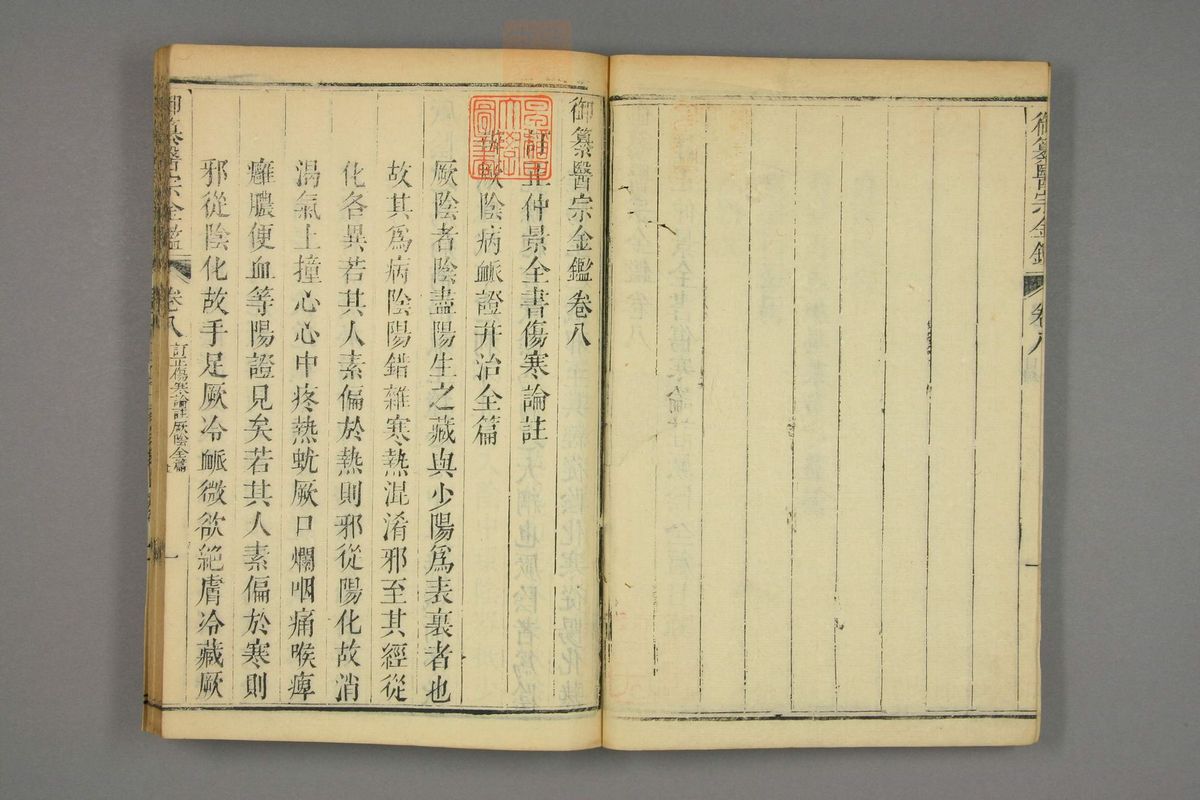 御纂醫宗金鑑
卷八
御纂醫宗金鑑卷八
訂正仲景全書傷寒論註
辨厥陰病脈證并治全篇
厥陰者陰盡陽生之藏與少陽爲表裏者也
故其爲病陰陽錯雜寒熱混淆邪至其經從
化各異若其人素偏於熱則邪從陽化故消
渴氣上撞心心中疼熱蚘厥口爛咽痛喉痺
癰膿便血等陽證見矣若其人素偏於寒則
邪從陰化故手足厥冷脈微欲絕膚冷藏厥
御纂醫宗金鑑
卷八
訂正傷寒論註厥陰全篇
一